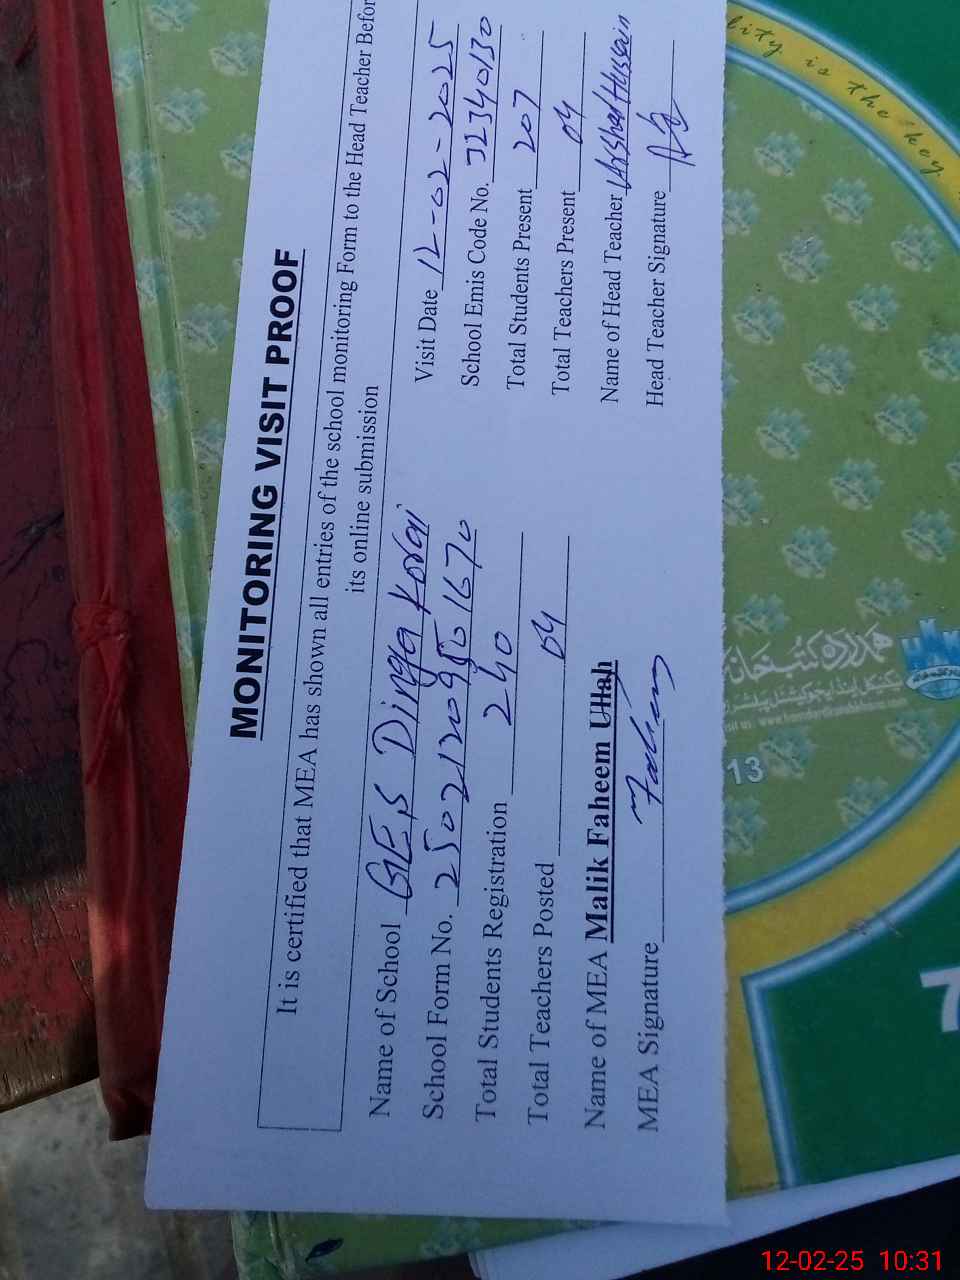 MONITORING VISIT PROOF
It is certified that MEA has shown all entries of the school monitoring Form to the Head Teacher Before
its online submission
Name of School GES Dinga Korai Visit Date 12-02-2025
School Form No. School Emis Code No. 32340130
Total Students Registration 240 Total Students Present 207
Total Teachers Posted 04 Total Teachers Present 04
Name of MEA Malik Faheem Ullah Name of Head Teacher Arshad Hussain
MEA Signature Faheem Head Teacher Signature
lity is the key
ھمدرد کتب خانہ
13
7
12-02-25 10:31